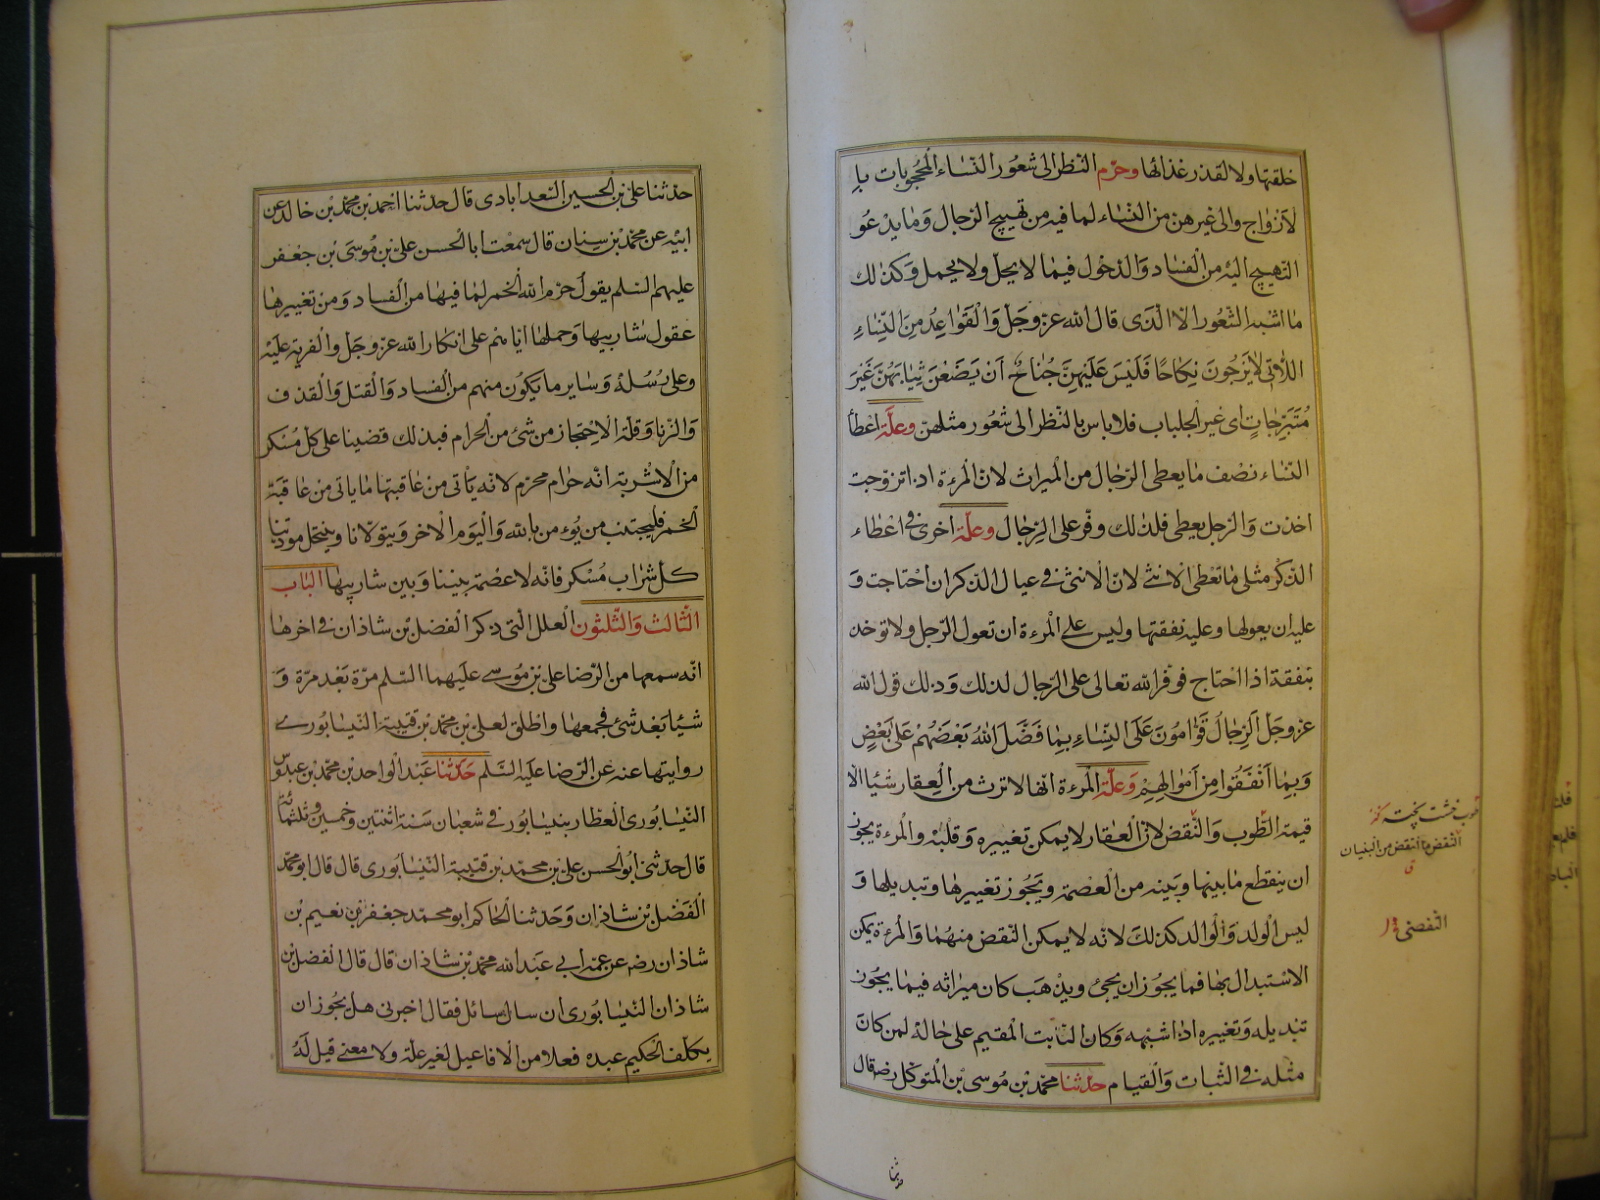 خلقتها ولا لقذر غذائها وحرم النظر الى شعور النساء المحجوبات با
لازواج والى غيرهن من النساء لما فيه من تهييج الرجال وما يدعو
التهييج اليه من الفساد والدخول فيما لا يحل ولا يجمل وكذلك
ما اشبه الشعور الا الذى قال الله عز وجل والقواعد من النساء
اللاتى لا يرجون نكاحا فليس عليهن جناح ان يضعن ثيابهن غير
متبرجات اى غير الجلباب فلا باس بالنظر الى شعور مثلهن وعلة اعطا
النساء نصف ما يعطى الرجال من الميراث لان المرءة اذا تزوجت
اخذت والرجل يعطى فلذلك وفر على الرجال وعلة اخرى فى اعطاء
الذكر مثلى ما تعطى الانثى لان الانثى فى عيال الذكر ان احتاجت و
عليه ان يعولها وعليه نفقتها وليس على المرءة ان تعول الرجل ولا توخذ
بنفقة اذا احتاج فوفر الله تعالى على الرجال لذلك وذلك قول الله
عز وجل الرجال قوامون على النساء بما فضل الله بعضهم على بعض
وبما انفقوا من اموالهم وعلة المرءة انها لا ترث من العقار شيئا الا
قيمة الطوب والنقض لان العقار لا يمكن تغييره وقلبه والمرءة يجوز
ان ينقطع ما بينها وبينه من العصمة ويجوز تغييرها وتبديلها و
ليس الولد والوالد كذلك لانه لا يمكن النقض منهما والمرءة يمكن
الاستبدال بها فما يجوز ان يجئ ويذهب كان ميراثه فيما يجوز
تبديله وتغييره اذا اشبهه وكان الثابت المقيم على حاله لمن كان
مثله فى الثبات والقيام حدثنا محمد بن موسى بن المتوكل رضه قال
طوب خشت پخته كنز
النقض ما انتقض من البنيان
ق
التفصى
حدثنا على بن الحسين السعدابادى قال حدثنا احمد بن محمد بن خالد عن
ابيه عن محمد بن سنان قال سمعت ابا الحسن على بن موسى بن جعفر
عليهم السلم يقول حرم الله الخمر لما فيها من الفساد ومن تغييرها
عقول شاربيها وحملها اياهم على انكار الله عز وجل والفرية عليه
وعلى رسله وساير ما يكون منهم من الفساد والقتل والقذف
والزنا وقلة الاحتجاز من شئ من الحرام فبذلك قضينا على كل مسكر
من الاشربة انه حرام محرم لانه ياتى من عاقبتها ما ياتى من عاقبة
الخمر فليجتنب من يؤمن بالله واليوم الاخر ويتولانا وينتحل مودتنا
كل شراب مسكر فانه لا عصمة بيننا وبين شاربيها الباب
الثالث والثلثون العلل التى ذكر الفضل بن شاذان فى اخرها
انه سمعها من الرضا على بن موسى عليهما السلم مرة بعد مرة و
شيئا بعد شئ فجمعها واطلق لعلى بن محمد بن قتيبة النيسابورى
روايتها عنه عن الرضا عليه السلم حدثنا عبد الواحد بن محمد بن عبدوس
النيسابورى العطار بنيسابور فى شعبان سنة اثنتين وخمسين وثلثمائة
قال حدثنى ابو الحسن على بن محمد بن قتيبة النيسابورى قال قال ابو محمد
الفضل بن شاذان وحدثنا الحاكم ابو محمد جعفر بن نعيم بن
شاذان رضه عن عمه ابى عبد الله محمد بن شاذان قال قال الفضل بن
شاذان النيسابورى ان سال سائل فقال اخبرنى هل يجوز ان
يكلف الحكيم عبده فعلا من الافاعيل لغير علة ولا معنى قيل له